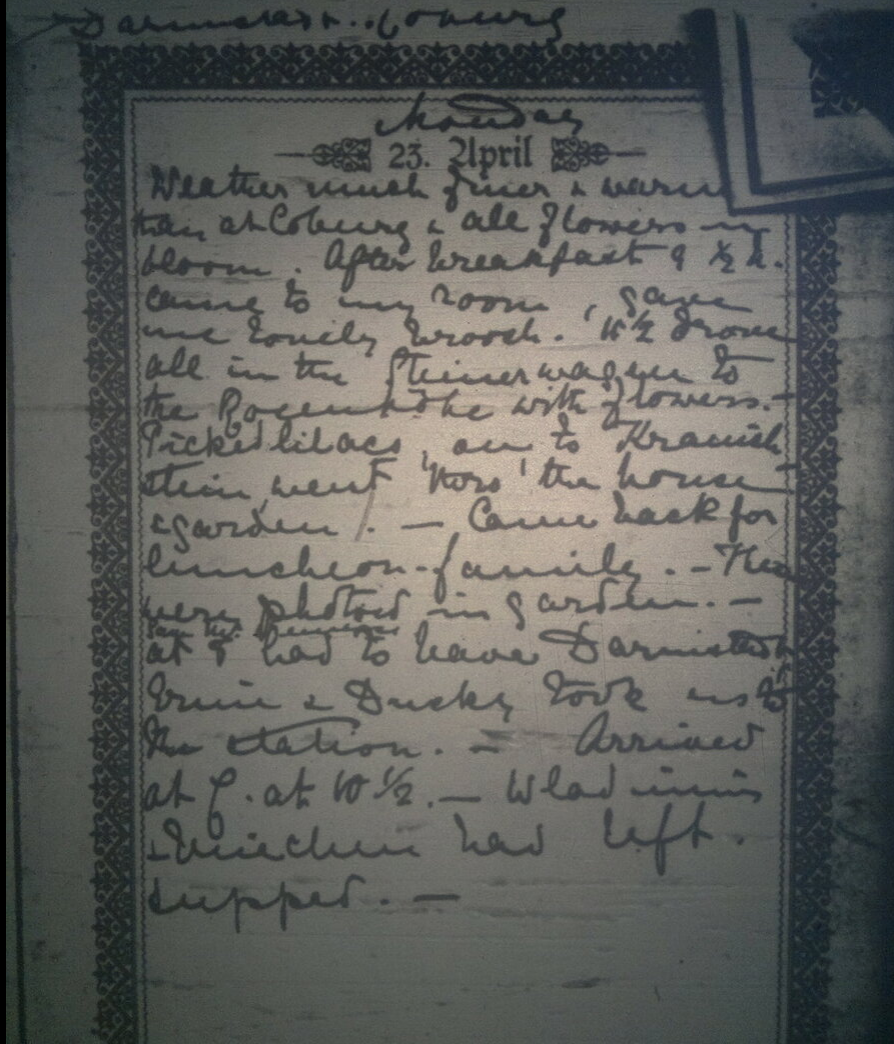 Darmstadt. Coburg
Monday
23. April
Weather much finer & warm
than at Coburg & all flowers in
bloom. After breakfast 9 ½ h.
came to my room, gave
me lovely brooch. 10 ½ drove
all in the Steinerwagen to
the Rosenhöhe with flowers. -
Picked lilacs, on to Kranich
stein, went 'thro' the house
& garden. — Came back for
luncheon-family. - Then
were photoed in garden. —
at had to leave Darmstadt
Ernie & Ducky took us to
the station. — Arrived
at C. at 10 ½. — Wladimir
& Miechen had left.
supped. —